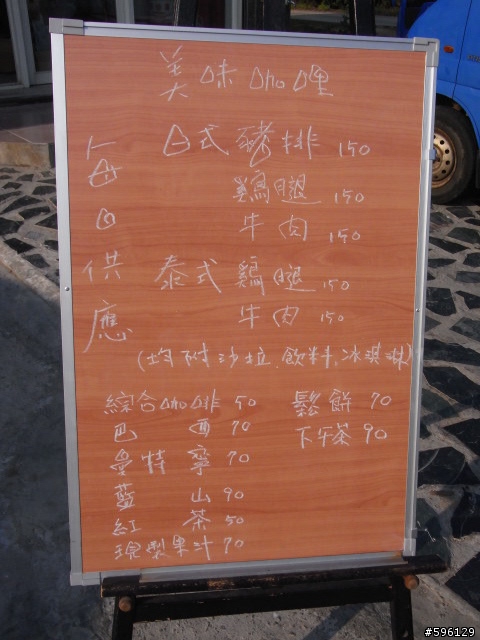 美味咖哩
每日供應
日式豬排 150
雞腿 150
牛肉 150
泰式雞腿 150
牛肉 150
(均附沙拉.飲料.冰淇淋)
綜合咖啡 50
巴西 70
曼特寧 70
藍山 90
紅茶 50
現榨果汁 70
鬆餅 70
下午茶 90
#596129